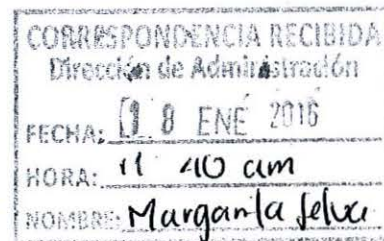 CORRESPONDENCIA RECIBIDA
Dirección de Administración
FECHA: 18 ENE 2016
HORA: 11 40 am
NOMBRE: Margarita